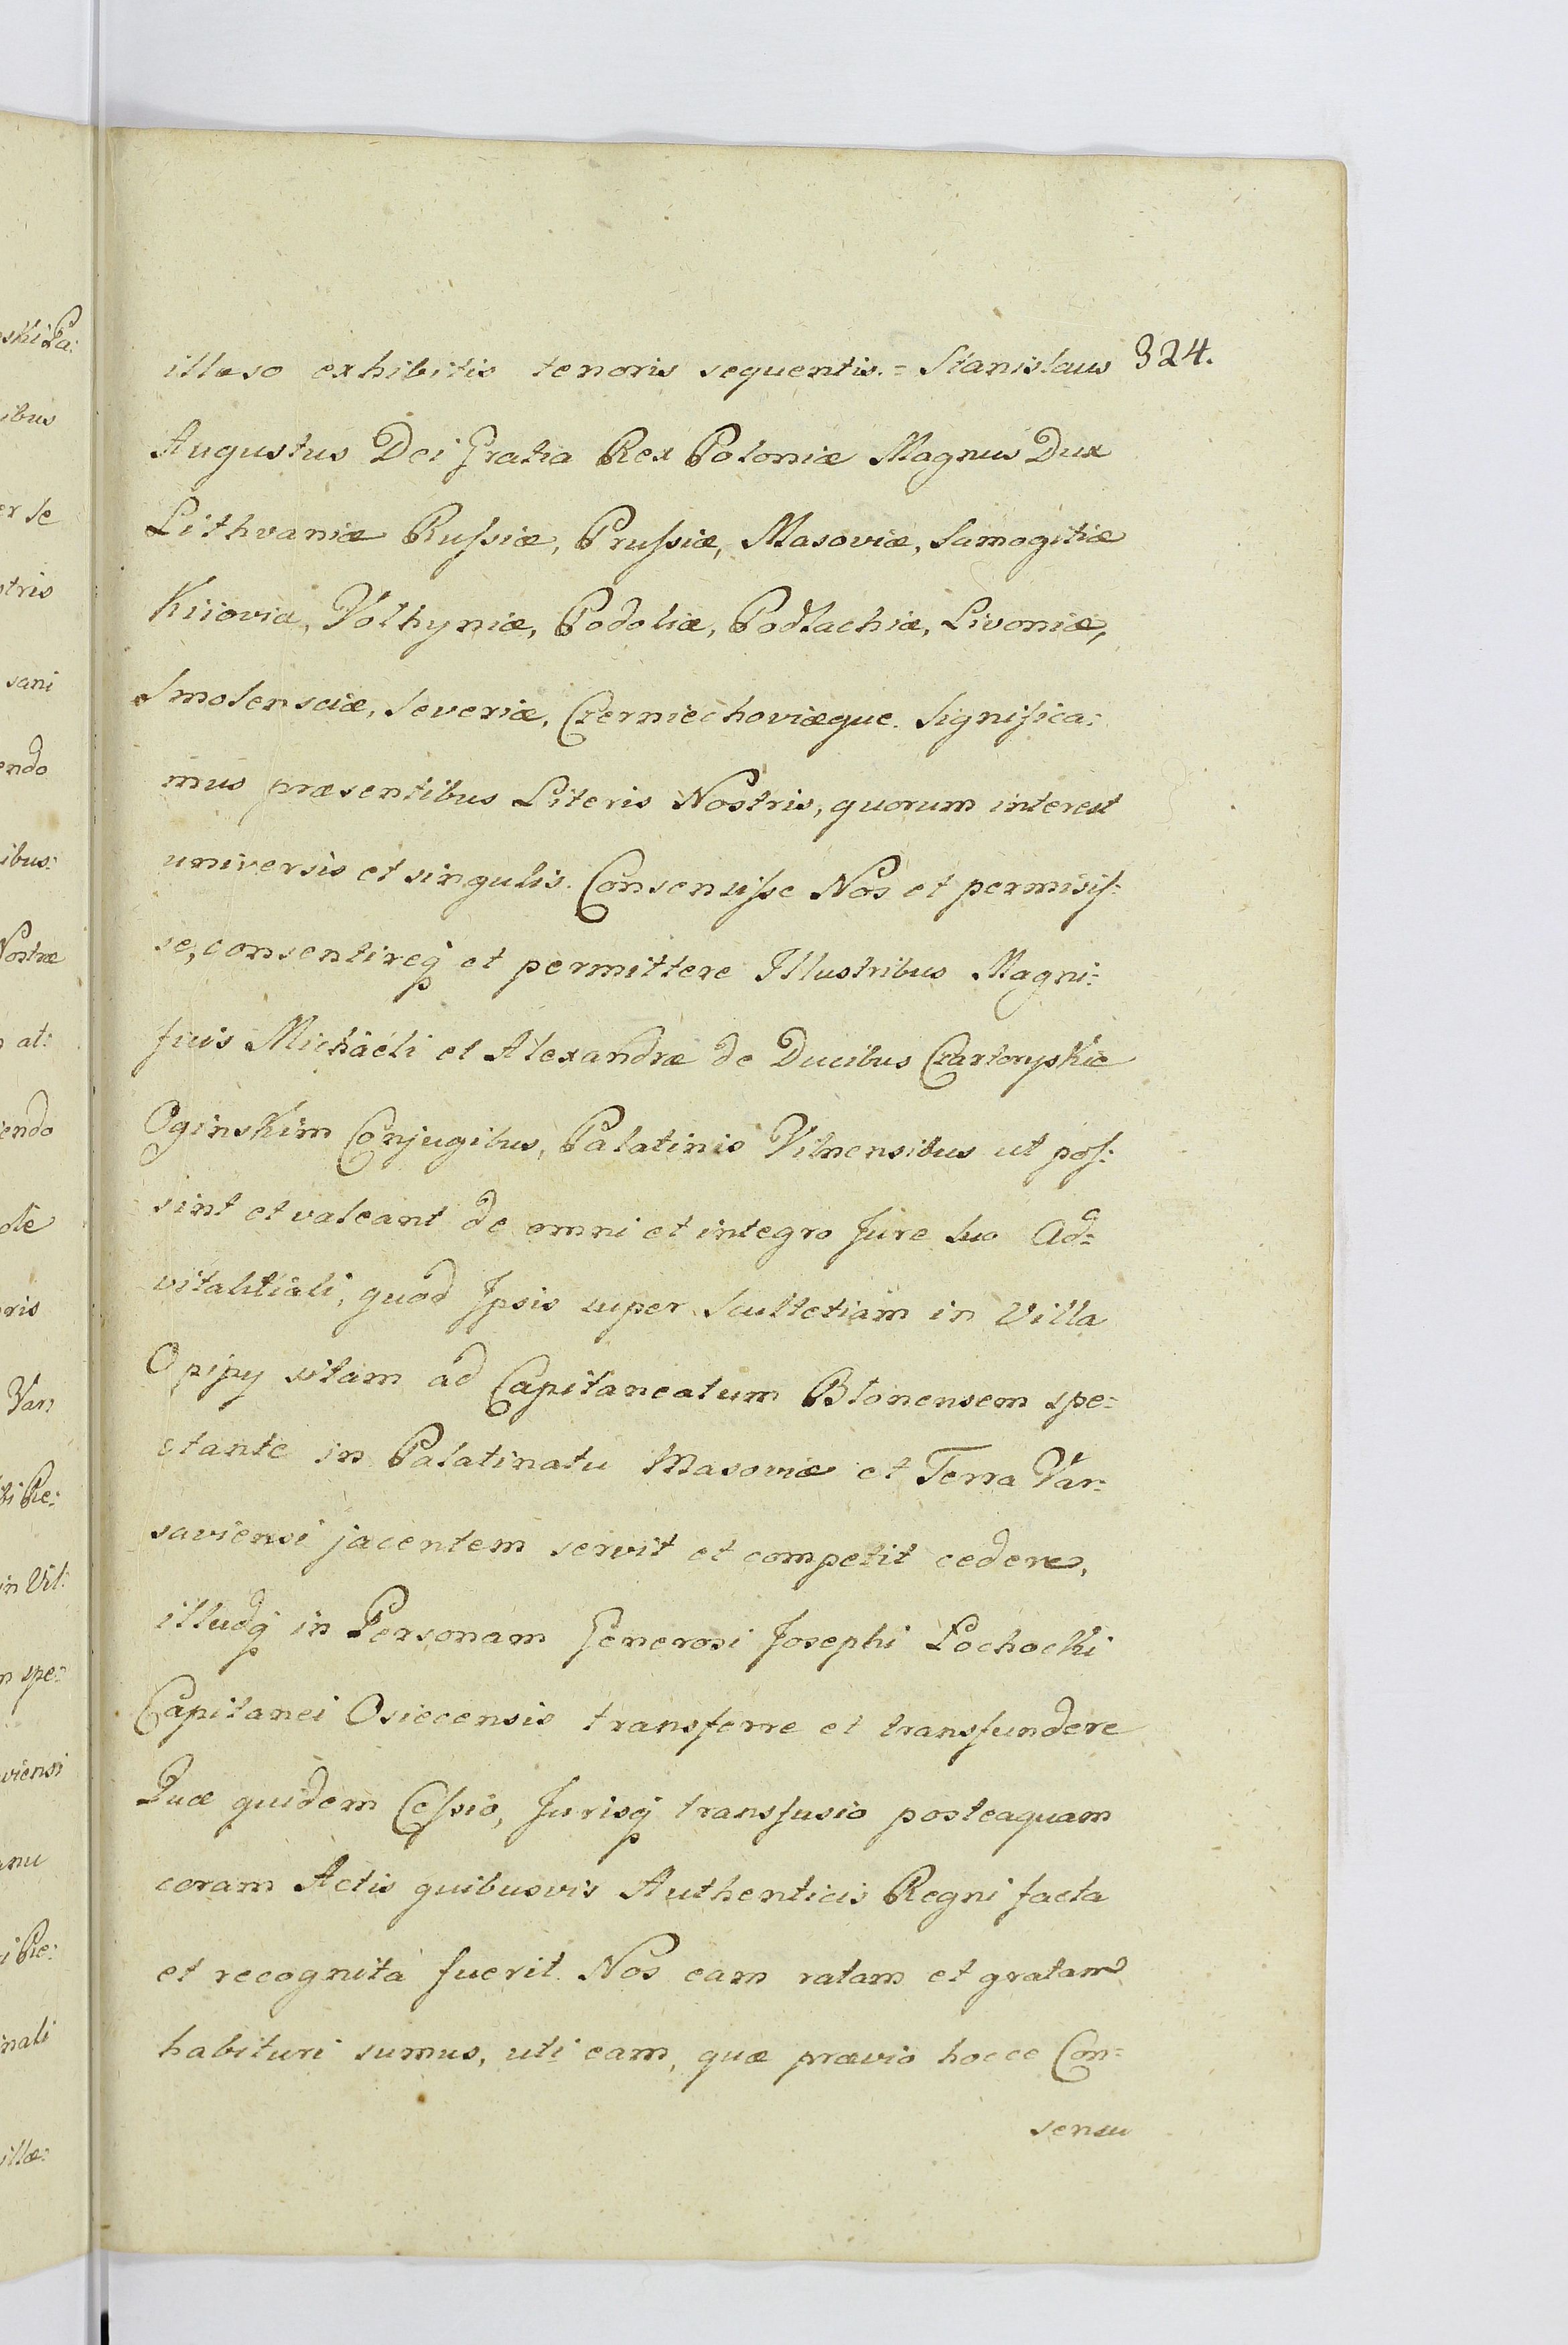 illæso exhibitis tenoris sequentis. = Stanislaus 324.
Augustus Dei Gratia Rex Poloniæ Magnus Dux
Lithvaniæ Rufsiæ, Prufsiæ, Masoviæ, Samogitiæ
Kiioviæ, Volhyniæ, Podoliæ, Podlachiæ, Livoniæ,
Smolensciæ, Severiæ, Czerniechoviæque. Significa:
mus præsentibus Literis Nostris, quorum interest
universis et singulis. Consensifse Nos et permisis:
se, consentireq́ et permittere Illustribus Magni:
ficis Michaeli et Alexandræ de Ducibus Czartoryskie
Oginskim Conjugibus, Palatinis Vilnensibus ut pos:
sint et valeant de omni et integro Jure suo Ad:
vitalitiali, quod Ipsis super Scultetiam in Villa
Opipy sitam ad Capitaneatum Blonensem spe:
ctante in Palatinatu Masoviæ et Terra Var:
saviensi jacentem servit et competit cedere,
illudq́ in Personam Generosi Josephi Lochocki
Capitanei Osiecensis transferre et transfundere
Quæ quidem Cefsio, Jurisq́ transfusio posteaquam
coram Actis quibusvis Authenticis Regni facta
et recognita fuerit. Nos eam ratam et gratam
habituri sumus, uti eam, quæ prævio hocce Con:
sensu
ski Pa:
ibus
er se
stris
sani
endo
ibus:
Nostræ
at:
endo
ole
oris
Var:
Re:
in Vil:
spe:
viensi
anu
Re:
nali
illæ: